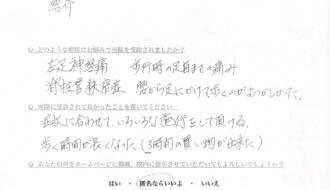 紹介
Q どのような症状にお悩みで当院を受診されましたか?
左足神経痛　歩行時の足首までの痛み
脊柱管狭窄症　腰から足にかけて歩くのがむつかしかった。
Q 実際に受診されて良かったことを書いてください。
症状に合わせていろいろな施行をして頂ける。
歩く時間が長くなった(3時間の買い物が出来た)
Q あなたの声をホームページに掲載、院内に掲示させていただいてもよろしいでしょうか?
はい ・ 匿名ならいいよ ・ いいえ